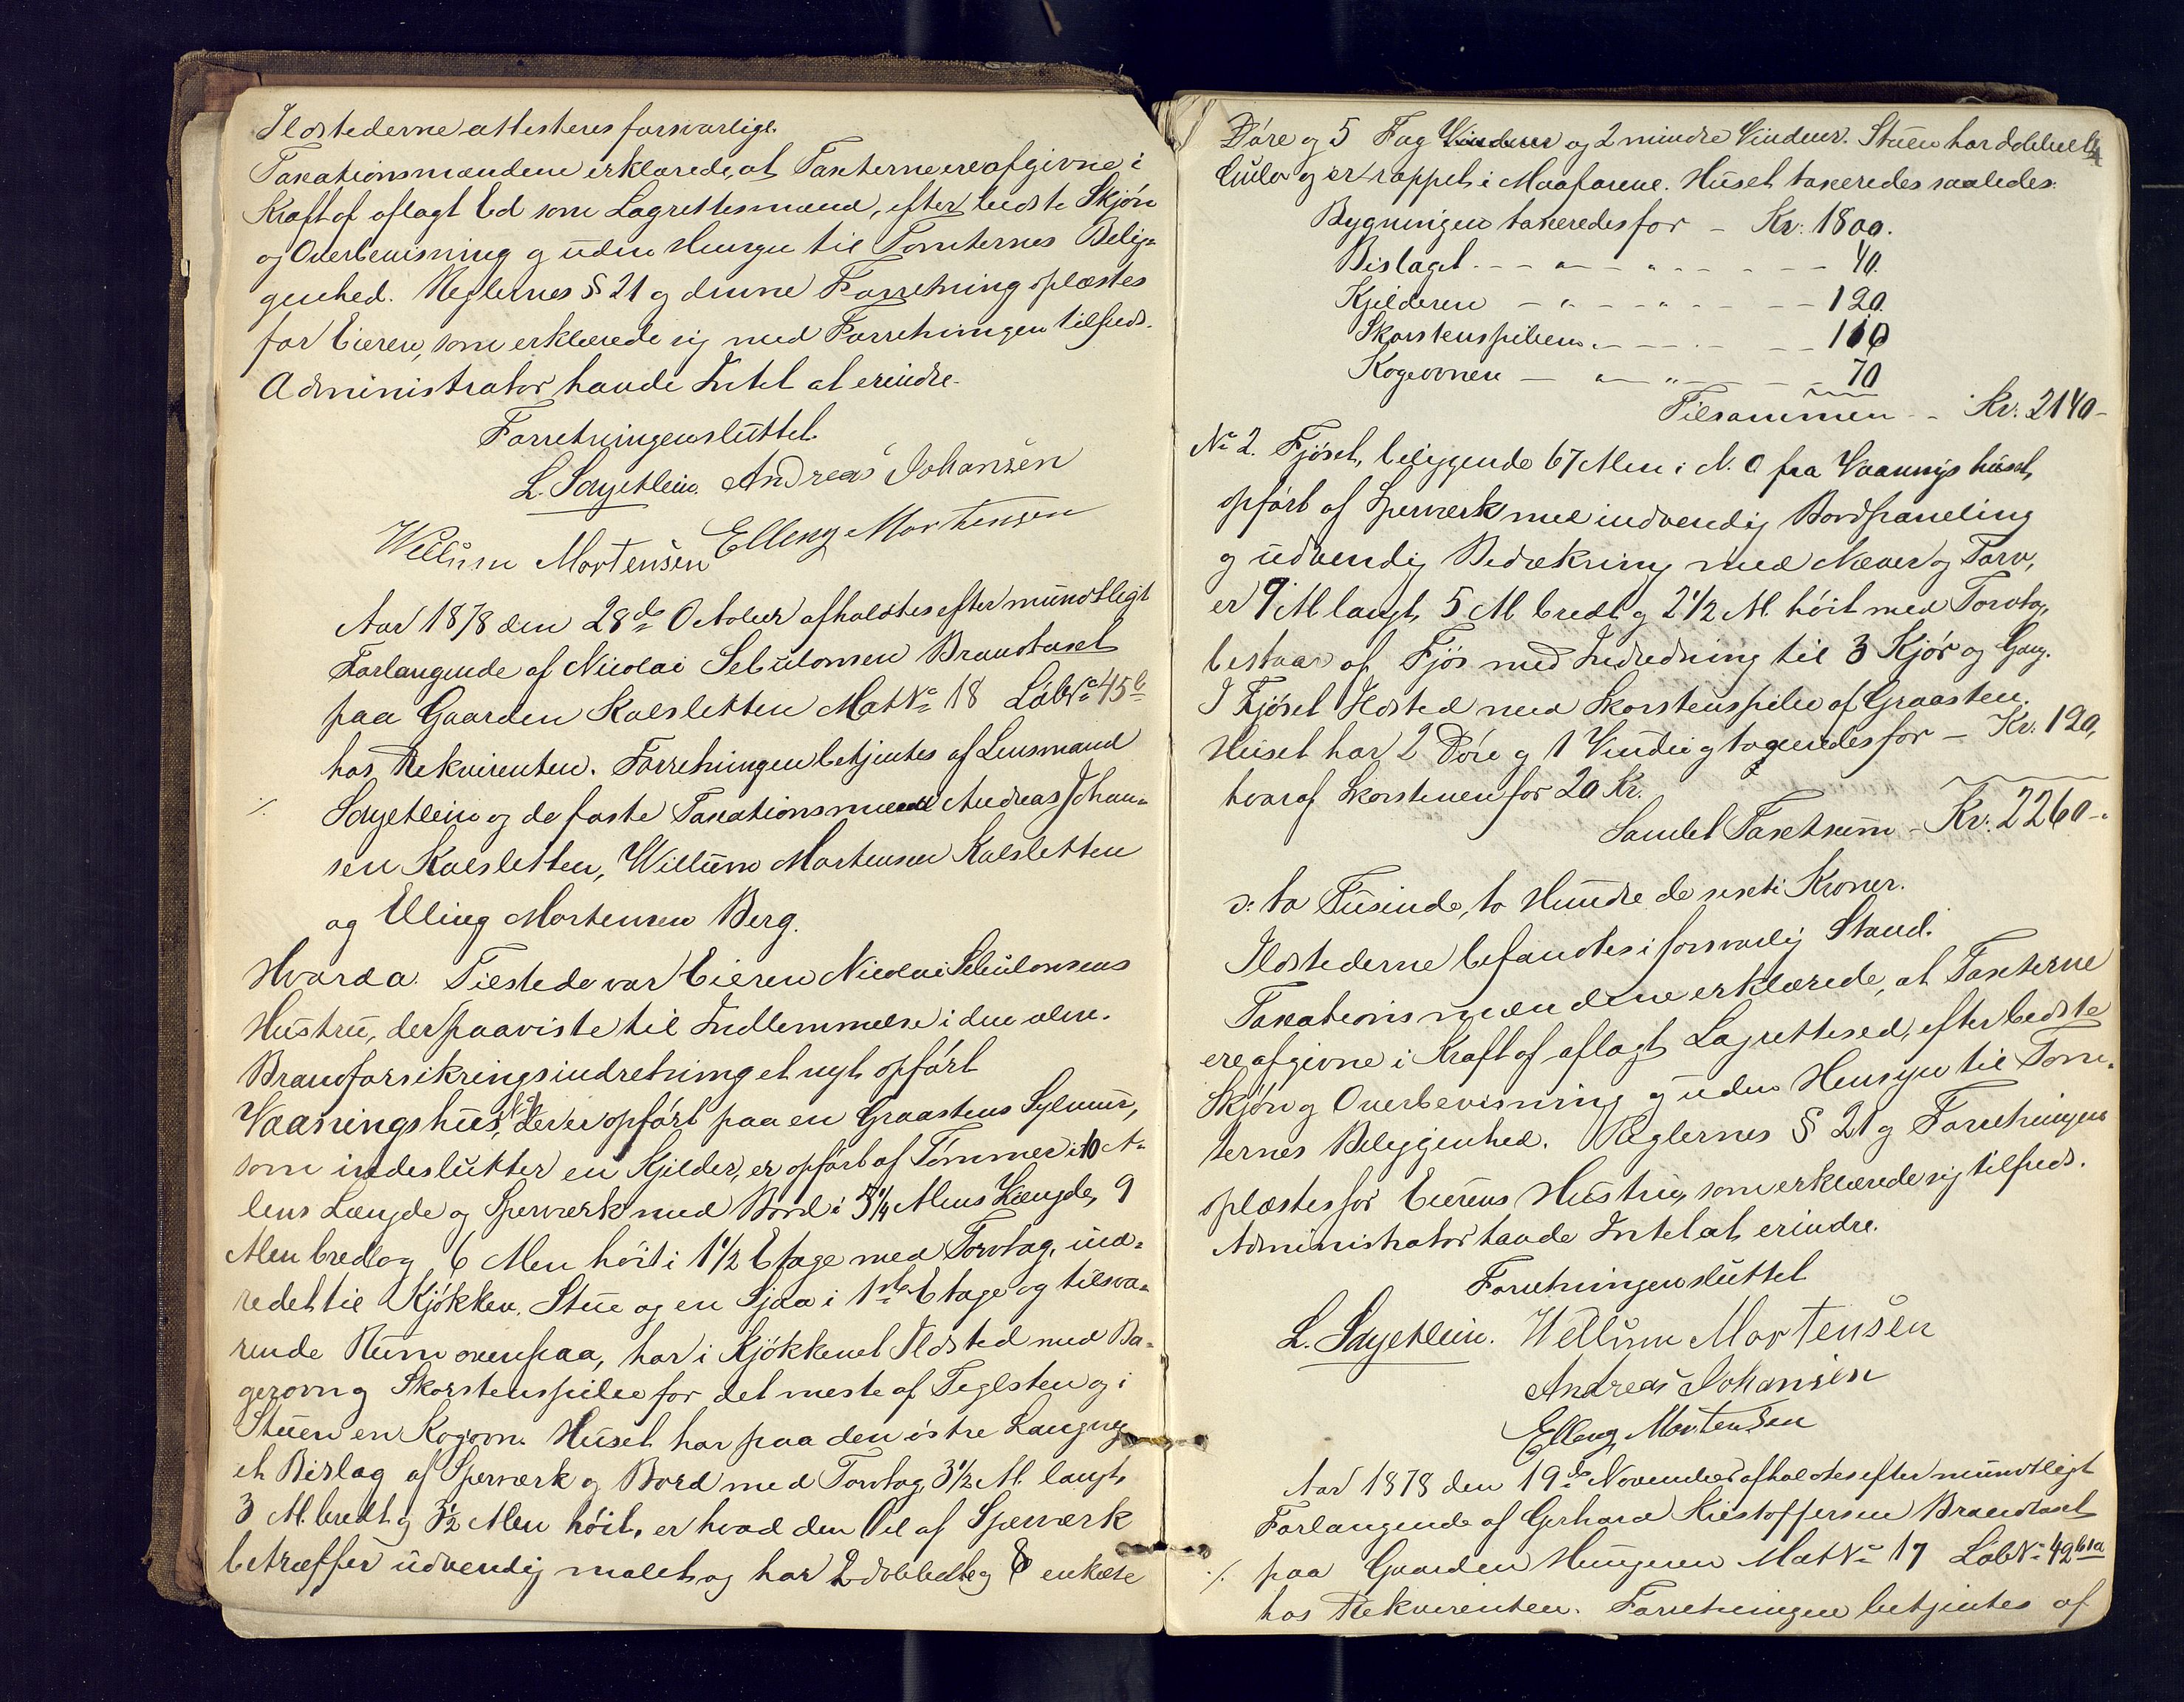 Ildstederne attesteres forsvarlige.
Taxationsmændene erklærede, at Taxterne ere afgivne i
Kraft af aflagt Ed som Lagrettesmænd, efter bedste Skjøn
og Overbevisning og uden Hensyn til Tomternes Belig-
genhed. Reglernes § 21 og denne Forretning oplæstes
for Eieren, som erklærede sig med Forretningen tilfreds.
Administrator havde Intet at erindre.
Forretningen sluttet.
L. Andreas Johansen
Willum Mortensen Elleng Mortensen
Aar 1878 den 28de October afholdtes efter mundtligt
Forlangende af Nicolai Sebulonsen Brandtaxt
paa Gaarden Kalsletten Mat No 18 Løb No 45b
hos Rekvirenten. Forretningen betjentes af Lensmand
og de faste Taxationsmænd Andreas Johan-
sen Kalsletten, Willum Mortensen Kalsletten
og Elling Mortensen Berg.
Hvorda. Tilstede var Eieren Nicolai Sebulonsens
Hustru, der paaviste til Indlemmelse i den alm.
Brandforsikringsindretning et nyt opført
Vaaningshus, der er opført paa en Graastens Sylmur,
som indeslutter en Kjelder, er opført af Tømmer i 10 A-
lens Længde og Sperværk med Bord i 5¼ Alens Længde, 9
Alen bred og 6 Alen høit i 1½ Etage med Torvtag, ind-
redet til Kjøkken, Stue og en Sjaa i 1ste Etage og tilsva-
rende Rum ovenpaa, har i Kjøkkenet Ildsted med Ba-
gerovn og Skorstenspibe for det meste af Teglsten og i
Stuen en Kogovn. Huset har paa den østre Langvæg
et Bislag af Sperværk og Bord med Torvtag, 3½ Al. langt,
3 Al. bredt og 3½ Alen høit, er hvad den Del af Sperværk
betræffer udvendig malet og har 2 dobbelte og 8 enkelte
Døre og 5 Fag Vinduer og 2 mindre Vinduer. Stuen har dobbelt
Gulv og er rappet i Maafarene. Huset taxeredes saaledes:
Bygningen taxeredes for - Kr. 1800.
Bislaget - - " - " - - - - 40.
Kjelderen - " - - " - - - 120.
Skorstenspiben - - - - - 110
Kogeovnen - " - " - - 70
Tilsammen - - Kr. 2140-
No 2. Fjøset, beliggende 67 Alen i N. O. fra Vaaningshuset,
opført af Sperværk med indvendig Bordpaneling
og udvendig Bedækning med Næver og Torv,
er 9 Al langt, 5 Al bredt og 2½ Al. høit med Torvtag,
bestaar af Fjøs med Indredning til 3 Kjør og Gang.
I Fjøset Ildsted med Skorstenspibe af Graasten.
Huset har 2 Døre og 1 Vindu og taxeredes for - Kr. 120,
hvoraf Skorstenen for 20 Kr.
Samlet Taxtsum - Kr. 2260-.
ɔ: to Tusinde, to Hundrede sexti Kroner.
Ildstederne befandtes i forsvarlig Stand.
Taxationsmændene erklærede, at Taxterne
ere afgivne i Kraft af aflagt Lagrettesed, efter bedste
Skjøn og Overbevisning og uden Hensyn til Tom-
ternes Beliggenhed. Reglernes § 21 og Forretningen
oplæstes for Eierens Hustru, som erklærede sig tilfreds.
Administrator havde Intet at erindre.
Forretningen sluttet
L. Willum Mortensen
Andreas Johansen
Elleng Mortensen
Aar 1878 den 19de November afholdtes efter mundtligt
Forlangende af Gerhard Kristoffersen Brandtaxt
paa Gaarden Mat No 17 Løb No 42b1a
hos Rekvirenten. Forretningen betjentes af